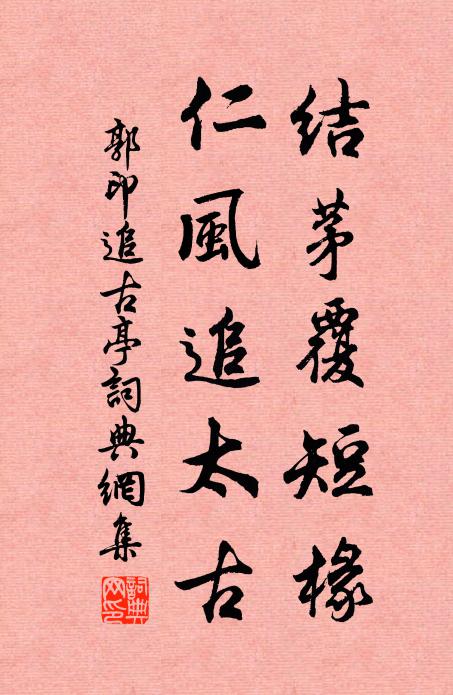 結茅覆短椽
仁風追太古
郭印追古亭詞典網集
詞典网印